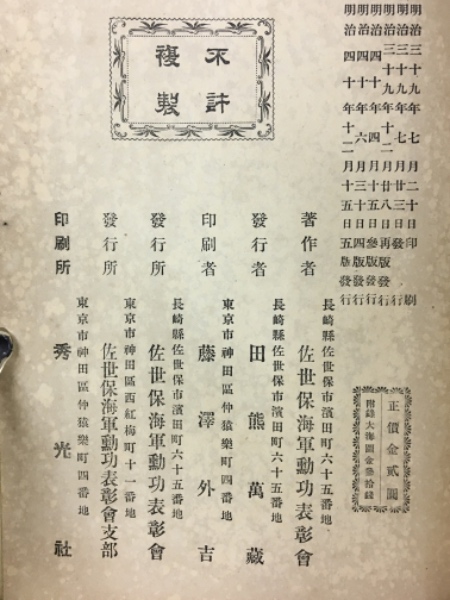 明治三十九年七月二十日印刷
明治三十九年七月廿三日發行
明治三十九年十二月廿八日再版發行
明治四十年四月十五日參版發行
明治四十年六月三十日四版發行
明治四十年十二月十五日五版發行
正價金貳圓
附錄大海圖金參拾錢
不許
複製
長崎縣佐世保市濱田町六十五番地
著作者 佐世保海軍勳功表彰會
長崎縣佐世保市濱田町六十五番地
發行者 田熊萬藏
東京市神田區仲猿樂町四番地
印刷者 藤澤外吉
長崎縣佐世保市濱田町六十五番地
發行所 佐世保海軍勳功表彰會
東京市神田區西紅梅町十一番地
發行所 佐世保海軍勳功表彰會支部
東京市神田區仲猿樂町四番地
印刷所 秀光社